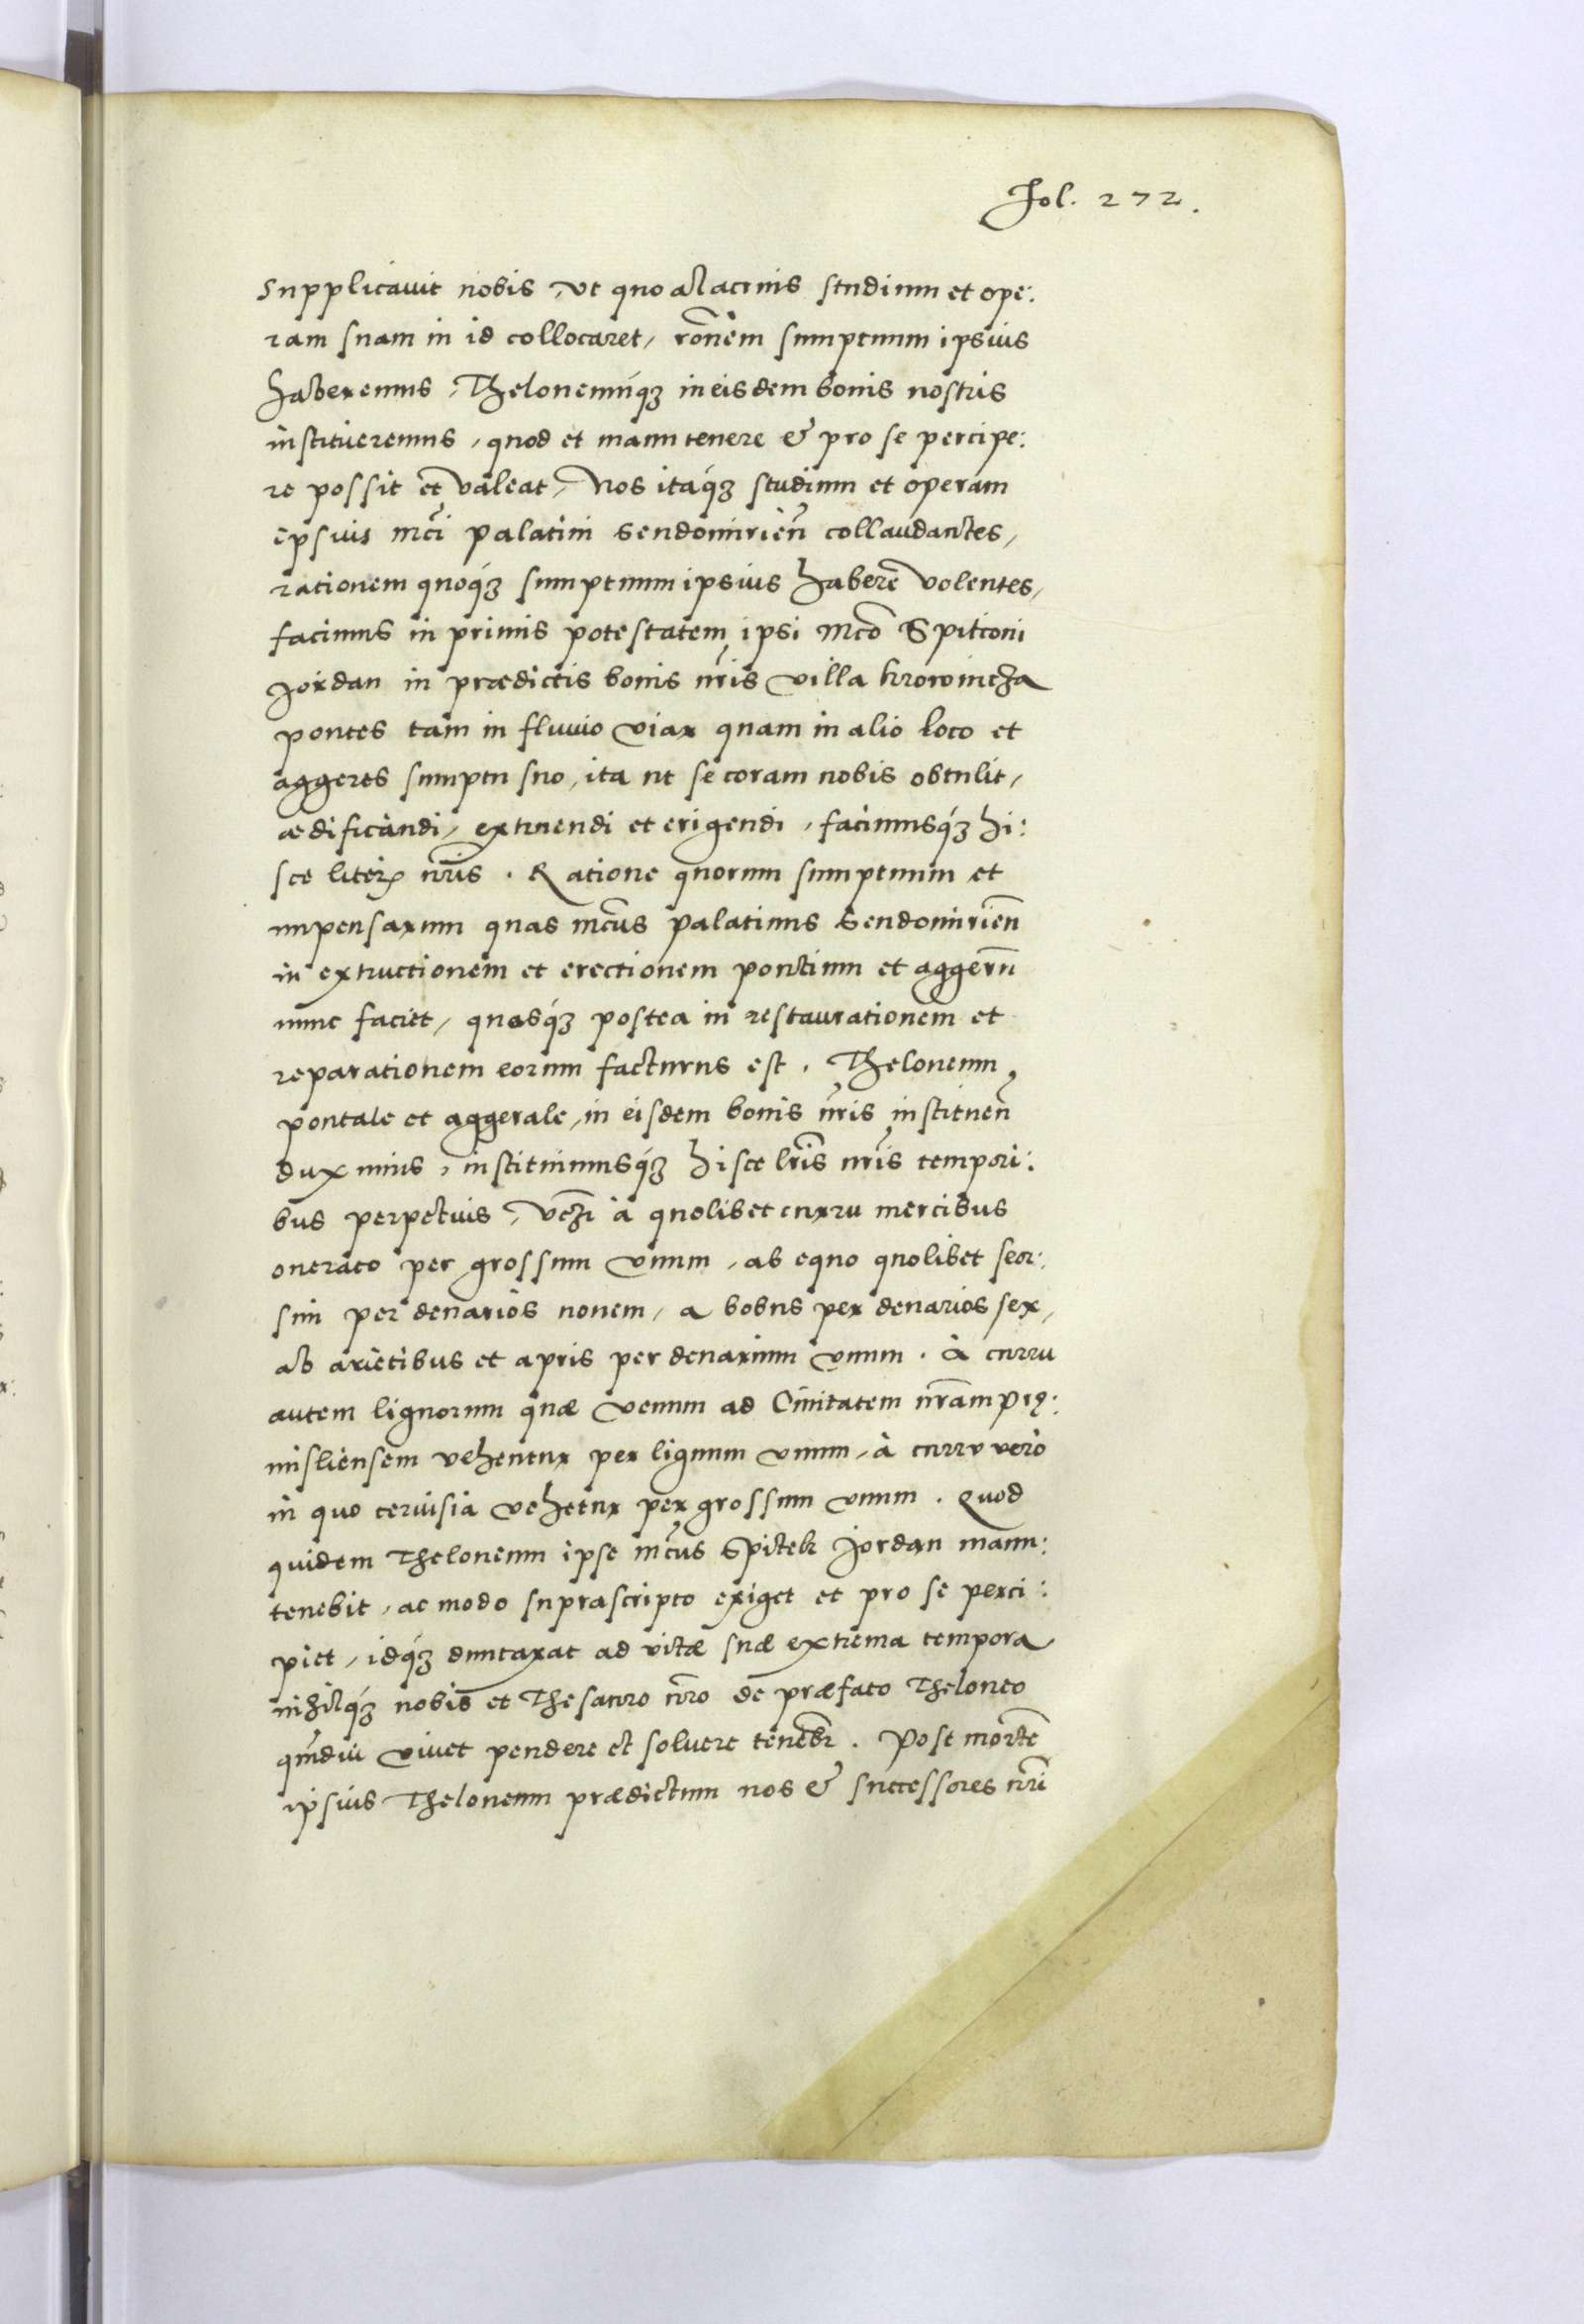 Fol. 272.
Supplicavit nobis, ut quo alacrius studium et ope:
ram suam in id collocaret, rõnẽm sumptuum ipsius
haberemus, Theloneumq́ꝫ in eisdem bonis nostris
institueremus, quod et manu tenere & pro se percipe:
re possit et valeat, Nos itaq́ꝫ studium et operam
ipsius Mc̃i Palatini Sendomirien̄ collaudantes,
rationem quoq́ꝫ sumptuum ipsius haberẽ volentes,
facimus in primis potestatem ipsi Mc̃o Spitconi
Jordan in prædictis bonis nr̃is villa Krowincza
pontes tam in fluvio Viar quam in alio loco et
aggeres sumptu suo, ita ut se coram nobis obtulit,
ædificandi, extruendi et erigendi, facimusq́ꝫ hi:
sce literꝭ nr̃is. Ratione quorum sumptuum et
impensarum quas mc̃us Palatinus Sendomirien̄
in extructionem et erectionem pontium et aggerũ
nunc faciet, quasq́ꝫ postea in restaurationem et
reparationem eorum facturus est. Theloneum
pontale et aggerale, in eisdem bonis nr̃is instituen̄
duximus, instituimusq́ꝫ hisce lr̃is nr̃is tempori:
bus perpetuis, vcꝫi à quolibet curru mercibus
onerato per grossum unum, ab equo quolibet seor:
sim per denarios novem, a bobus per denarios sex,
ab arietibus et apris per denarium unum. à curru
autem lignorum quæ venum ad Civitatem nr̃am Prę:
misliensem vehentur per lignum unum, à curru verò
in quo cervisia vehetur per grossum unum. Quod
quidem Theloneum ipse mc̃us Spitek Jordan manu:
tenebit, ac modo suprascripto exiget et pro se perci:
piet, idq́ꝫ duntaxat ad vitæ suæ extrema tempora
nihilq́ꝫ nobis et Thesauro nr̃o de præfato Theloneo
qm̃diu vivet pendere et solvere tenebr̃. Post mortẽ
ipsius Theloneum prædictum nos & successores nr̃i